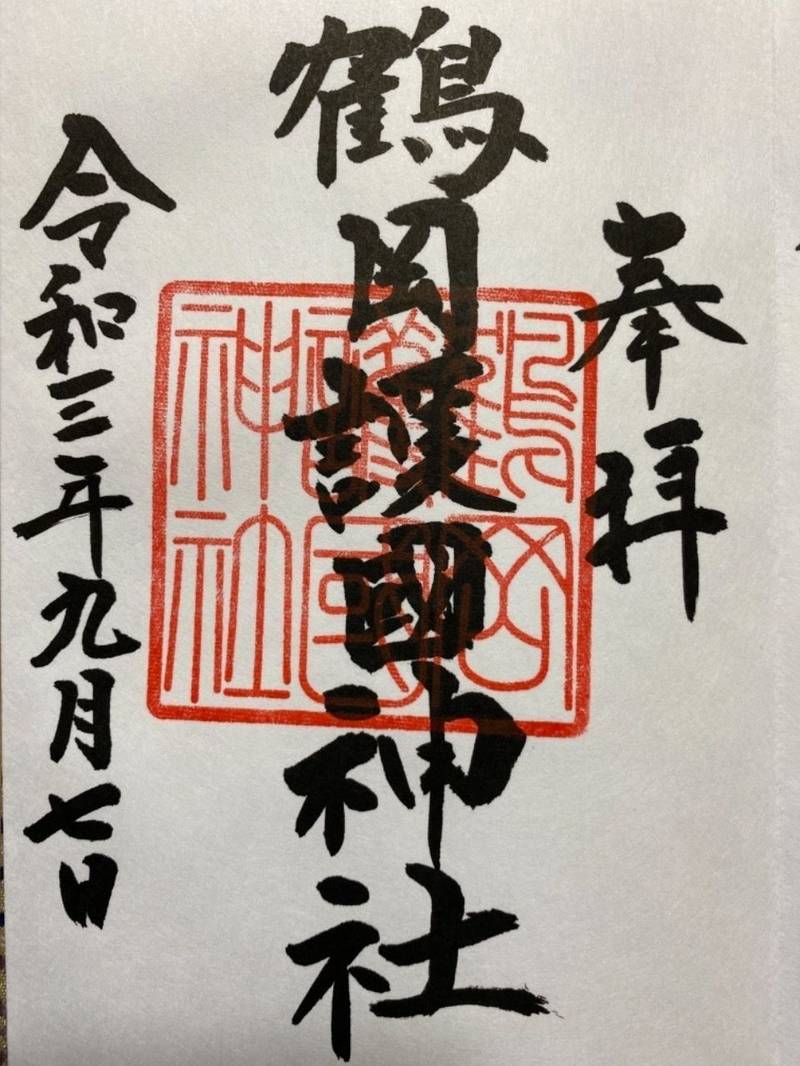 奉拝
鶴岡護國神社
鶴岡護國神社
令和三年九月七日